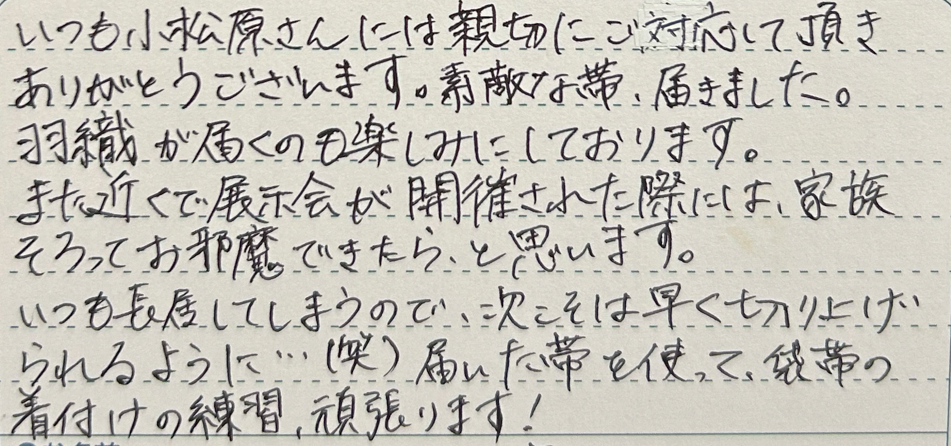 いつも小松原さんには親切にご対応して頂き
ありがとうございます。素敵な帯、届きました。
羽織が届くのも楽しみにしております。
また近くで展示会が開催された際には、家族
そろってお邪魔できたら、と思います。
いつも長居してしまうので、次こそは早く切り上げ
られるように…(笑)届いた帯を使って、袋帯の
着付けの練習、頑張ります!